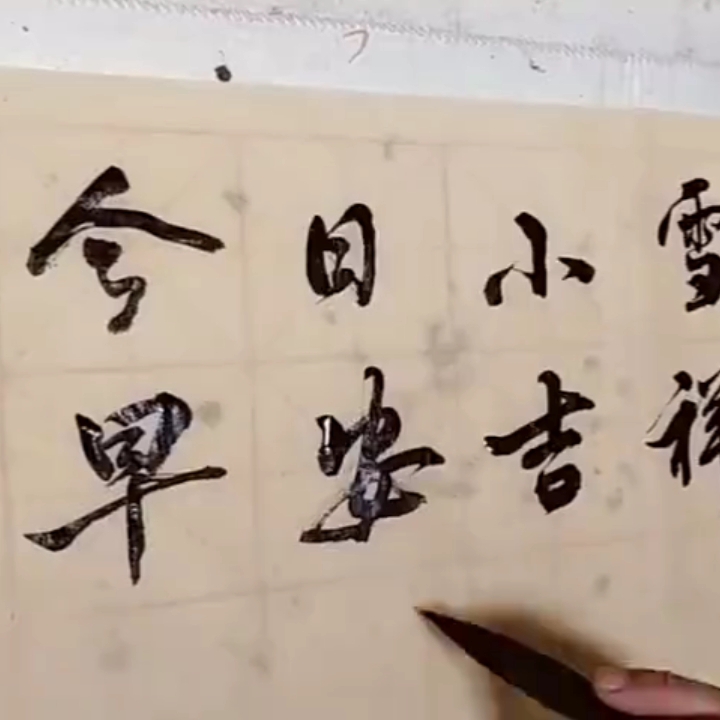 今日小雪
早安吉祥